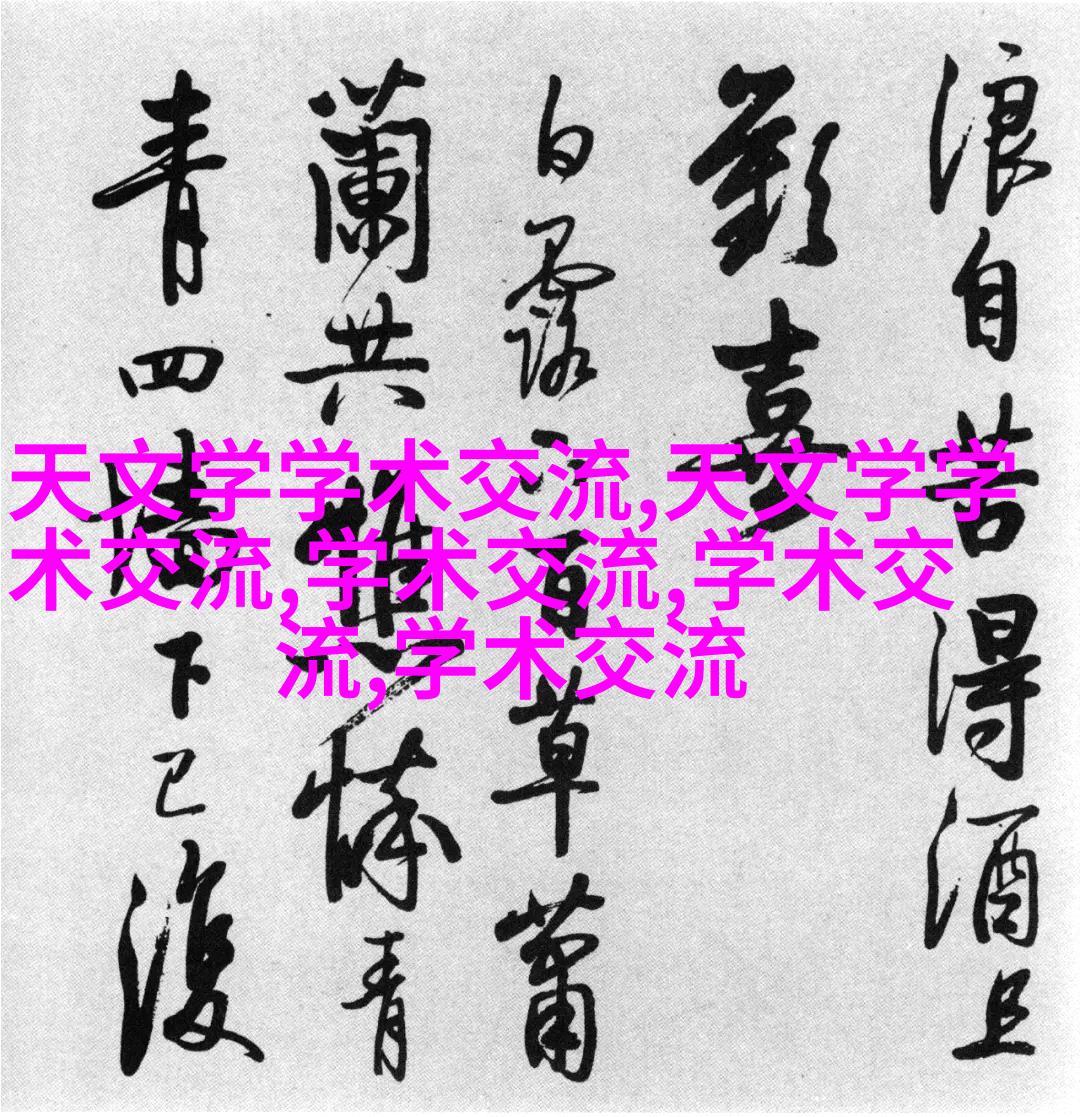 浪自苦得酒且
歡喜
白露下百草蕭
蘭共雕悴青
青四牆下已復
天文学学术交流,天文学学
术交流,学术交流,学术交
流,学术交流